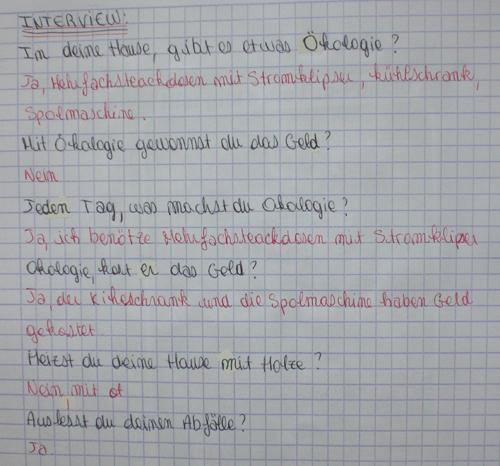 INTERVIEW:
Im deine Hause, gibt es etwas Ökologie?
Ja, Mehrfachsteackdosen mit Stromklipser, kühlschrank,
Spolmaschine.
Mit Ökologie gewonnst du das Geld?
Nein
Jeden Tag, was machst du Okologie?
Ja, ich benötze Mehrfachsteackdosen mit Stromklipser
Okologie, kost er das Geld?
Ja, der Kikeschrank und die Spolmaschine haben Geld
gekostet
Heizst du deine Hause mit Holze?
Nein mit
Auslesst du deinen Abfälle?
Ja